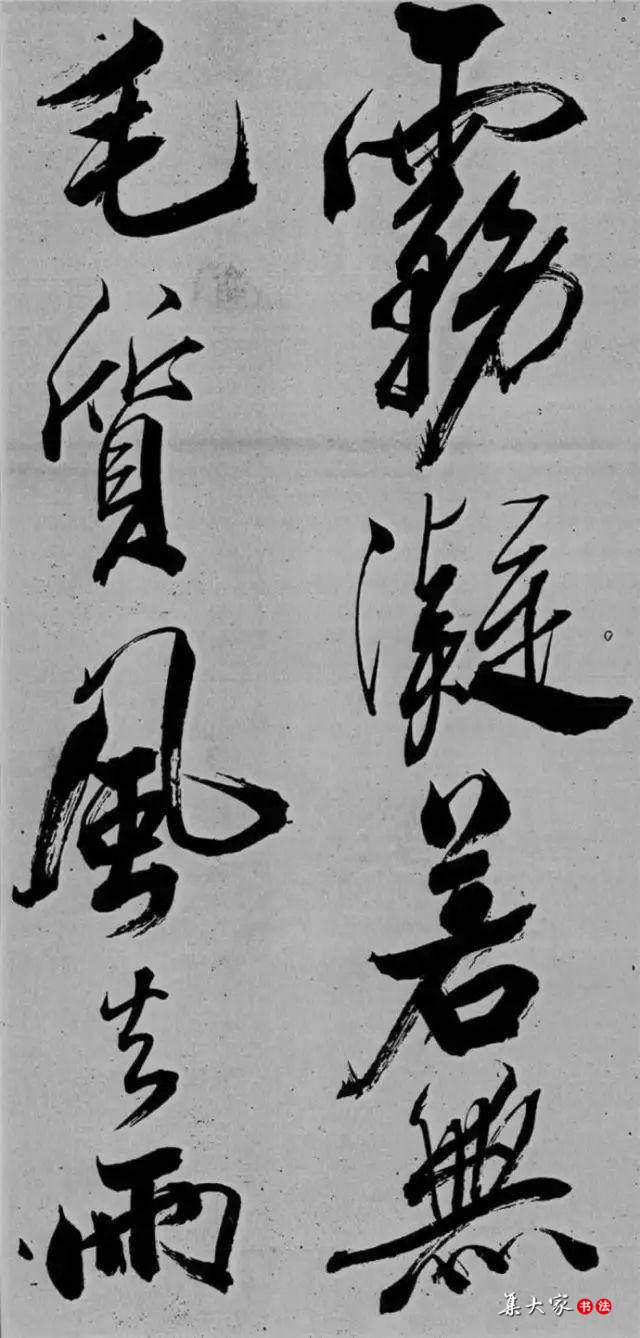 霧凝若無
毛質風去雨
集大家书法